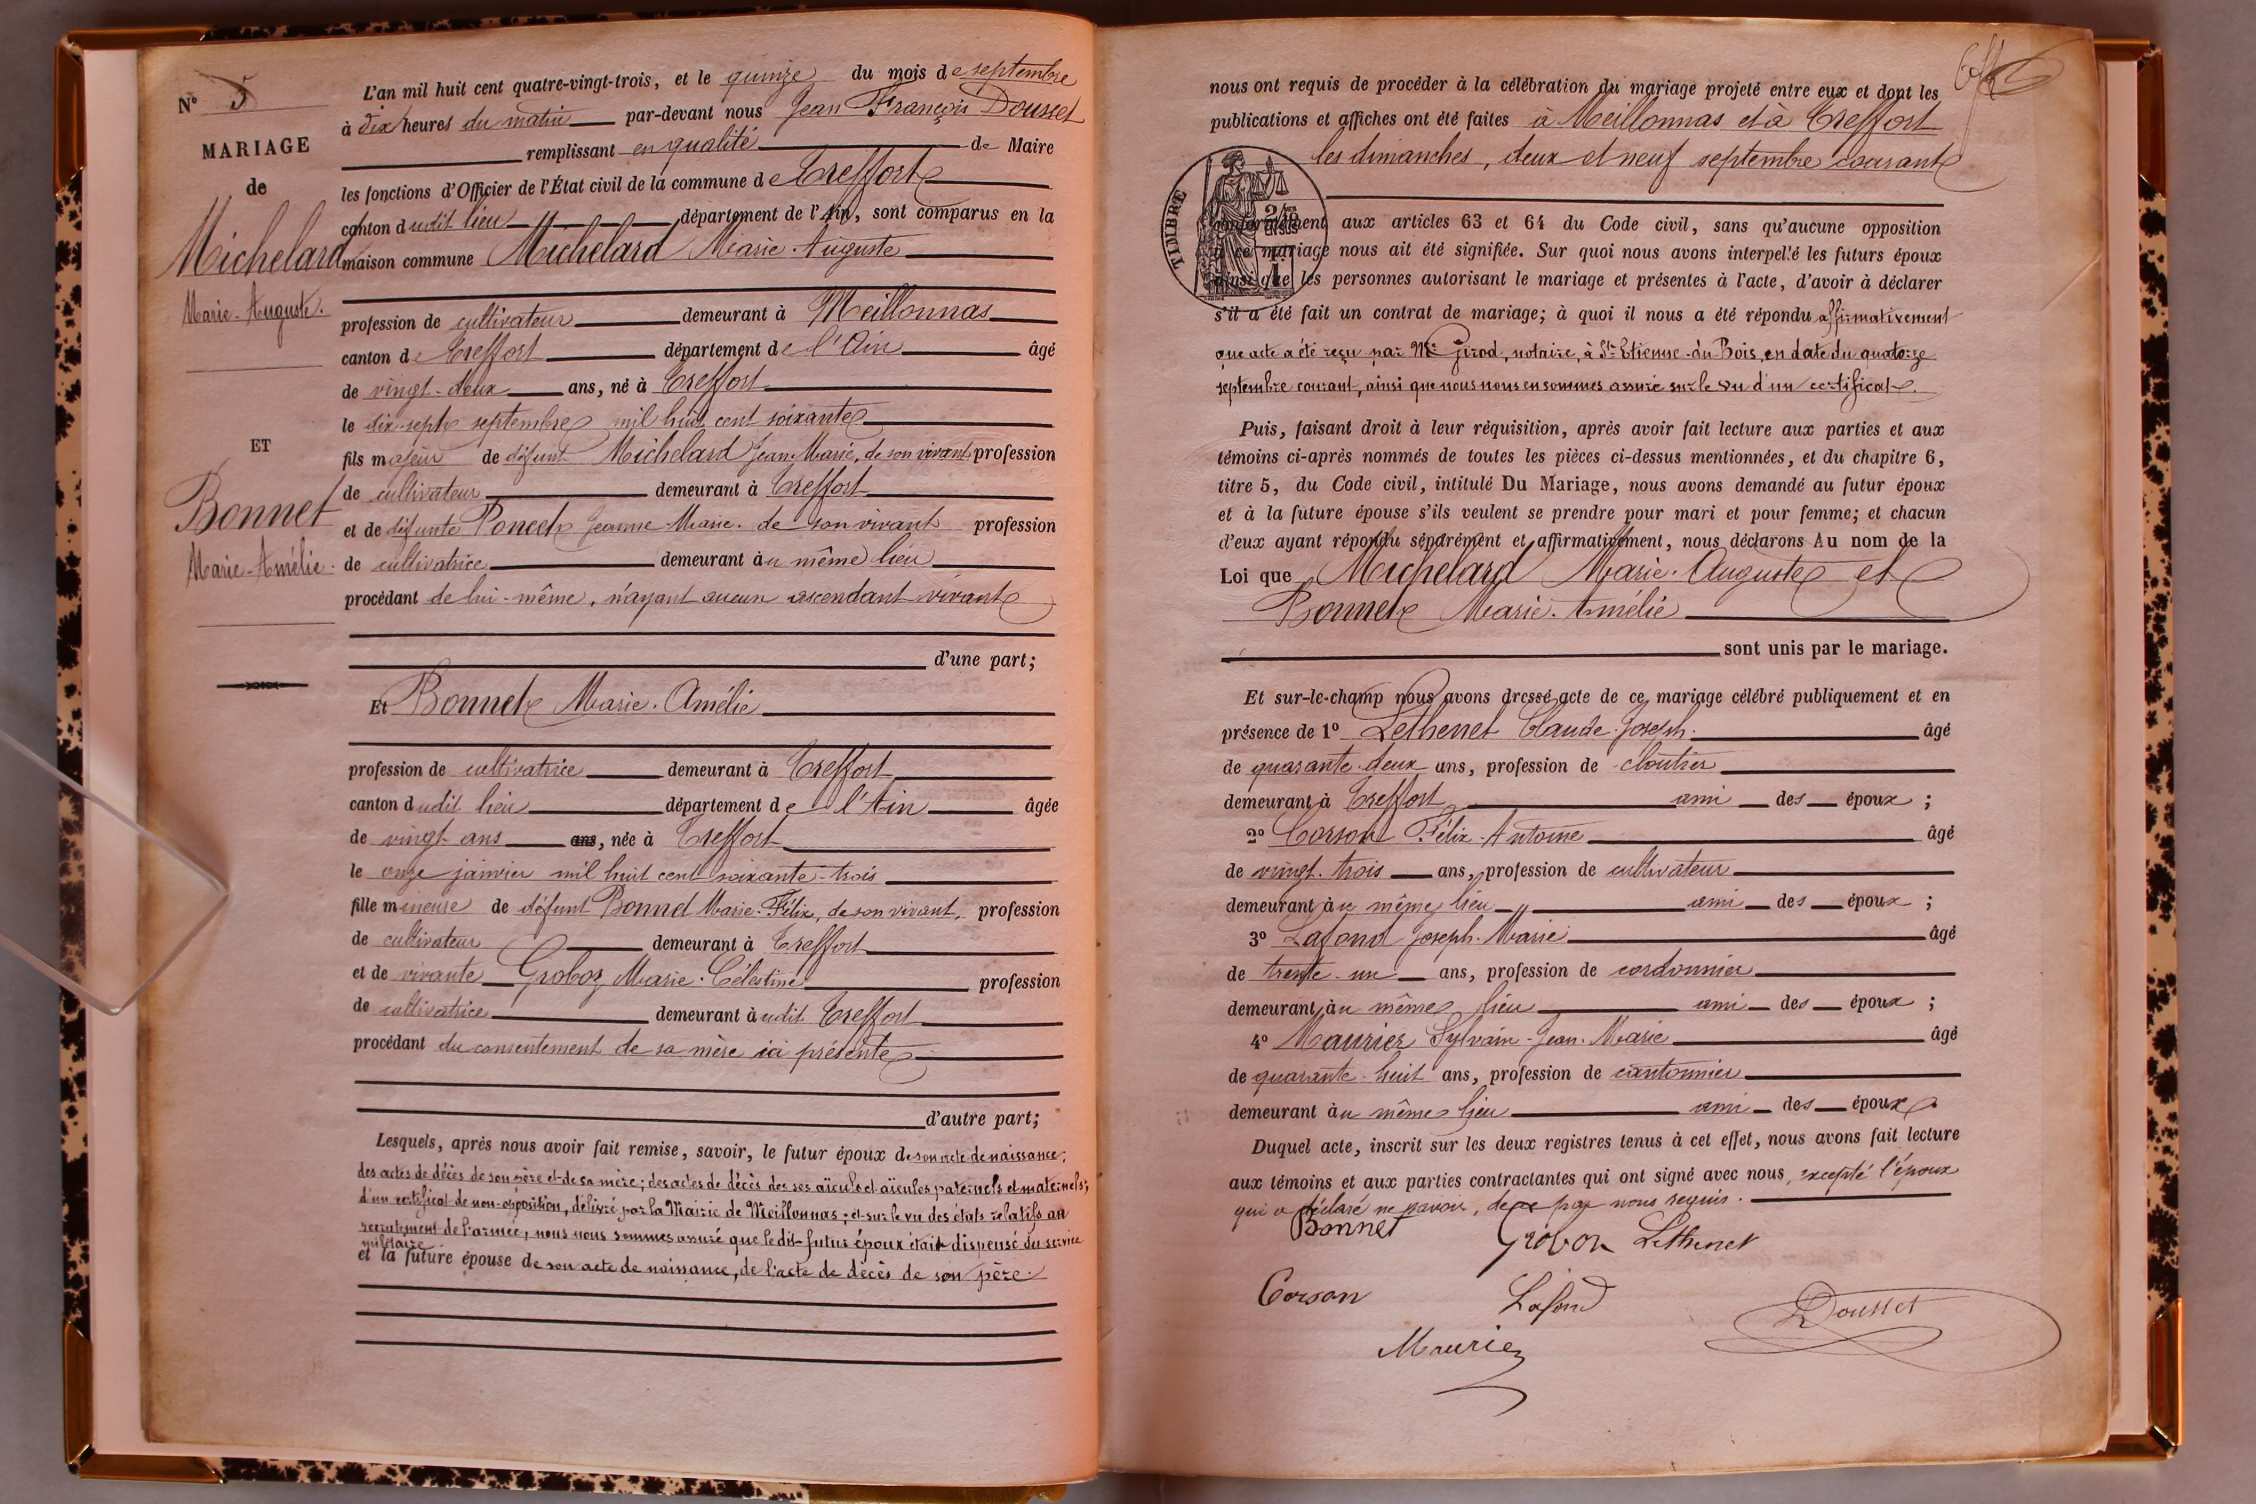 N° 5
MARIAGE
de
Michelard
Marie-Auguste.
ET
Bonnet
Marie-Amélie.
L'an mil huit cent quatre-vingt-trois, et le quinze du mois de septembre
à dix heures du matin par-devant nous Jean François Dousset
remplissant en qualité de Maire
les fonctions d'Officier de l'État civil de la commune de Treffort
canton dudit lieu département de l'Ain, sont comparus en la
maison commune Michelard Marie-Auguste
profession de cultivateur demeurant à Meillonnas
canton de Treffort département de l'Ain âgé
de vingt-deux ans, né à Treffort
le dix-sept septembre mil huit cent soixante
fils majeur de défunt Michelard Jean-Marie, de son vivant profession
de cultivateur demeurant à Treffort
et de défunte Poncet Jeanne-Marie. de son vivant profession
de cultivatrice demeurant au même lieu
procédant de lui-même, n'ayant aucun ascendant vivant
d'une part;
Et Bonnet Marie-Amélie
profession de cultivatrice demeurant à Treffort
canton dudit lieu département de l'Ain âgée
de vingt ans ans, née à Treffort
le onze janvier mil huit cent soixante-trois
fille mineure de défunt Bonnet Marie-Félix, de son vivant, profession
de cultivateur demeurant à Treffort
et de vivante Groboz Marie-Célestine profession
de cultivatrice demeurant audit Treffort
procédant du consentement de sa mère ici présente
d'autre part;
Lesquels, après nous avoir fait remise, savoir, le futur époux de son acte de naissance;
des actes de décès de son père et de sa mère; des actes de décès des ses aïeuls et aïeules paternels et maternels;
d'un certificat de non-opposition, délivré par la Mairie de Meillonnas; et sur le vu des états relatifs au
recrutement de l'armée, nous nous sommes assuré que le dit futur époux était dispensé du service
militaire
et la future épouse de son acte de naissance, de l'acte de décès de son père.
nous ont requis de procéder à la célébration du mariage projeté entre eux et dont les
publications et affiches ont été faites à Meillonnas et à Treffort
les dimanches, deux et neuf septembre courant
TIMBRE
conformément aux articles 63 et 64 du Code civil, sans qu'aucune opposition
à ce mariage nous ait été signifiée. Sur quoi nous avons interpellé les futurs époux
ainsi que les personnes autorisant le mariage et présentes à l'acte, d'avoir à déclarer
s'il a été fait un contrat de mariage; à quoi il nous a été répondu affirmativement
que acte a été reçu par Me Girod, notaire, à St Etienne-du-Bois, en date du quatorze
septembre courant, ainsi que nous nous en sommes assuré sur le vu d'un certificat.
Puis, faisant droit à leur réquisition, après avoir fait lecture aux parties et aux
témoins ci-après nommés de toutes les pièces ci-dessus mentionnées, et du chapitre 6,
titre 5, du Code civil, intitulé Du Mariage, nous avons demandé au futur époux
et à la future épouse s'ils veulent se prendre pour mari et pour femme; et chacun
d'eux ayant répondu séparément et affirmativement, nous déclarons Au nom de la
Loi que Michelard Marie-Auguste et
Bonnet Marie-Amélie
sont unis par le mariage.
Et sur-le-champ nous avons dressé acte de ce mariage célébré publiquement et en
présence de 1° Lethenet Claude-Joseph. âgé
de quarante-deux ans, profession de cloutier
demeurant à Treffort ami des époux;
2° Corson Félix-Antoine âgé
de vingt-trois ans, profession de cultivateur
demeurant au même lieu ami des époux;
3° Lafond Joseph-Marie âgé
de trente-un ans, profession de cordonnier
demeurant au même lieu ami des époux;
4° Maurier Sylvain-Jean-Marie âgé
de quarante-huit ans, profession de cantonnier
demeurant au même lieu ami des époux.
Duquel acte, inscrit sur les deux registres tenus à cet effet, nous avons fait lecture
aux témoins et aux parties contractantes qui ont signé avec nous, excepté l'époux
qui a déclaré ne savoir, de ce par nous requis.
Bonnet Grobon Lethenet
Corson Lafond Dousset
Maurier